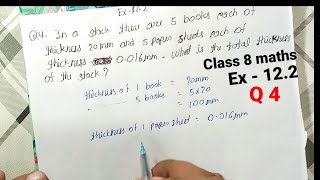 Ex-12.2
Q4. In a stack there are 5 books each of
thickness 20mm and 5 paper sheets each of
thickness 0.016mm. What is the total thickness
of the stack?
Class 8 maths
Ex - 12.2
Q 4
thickness of 1 book = 20mm
" 5 books = 5×20
= 100mm
thickness of 1 paper sheet = 0.016mm